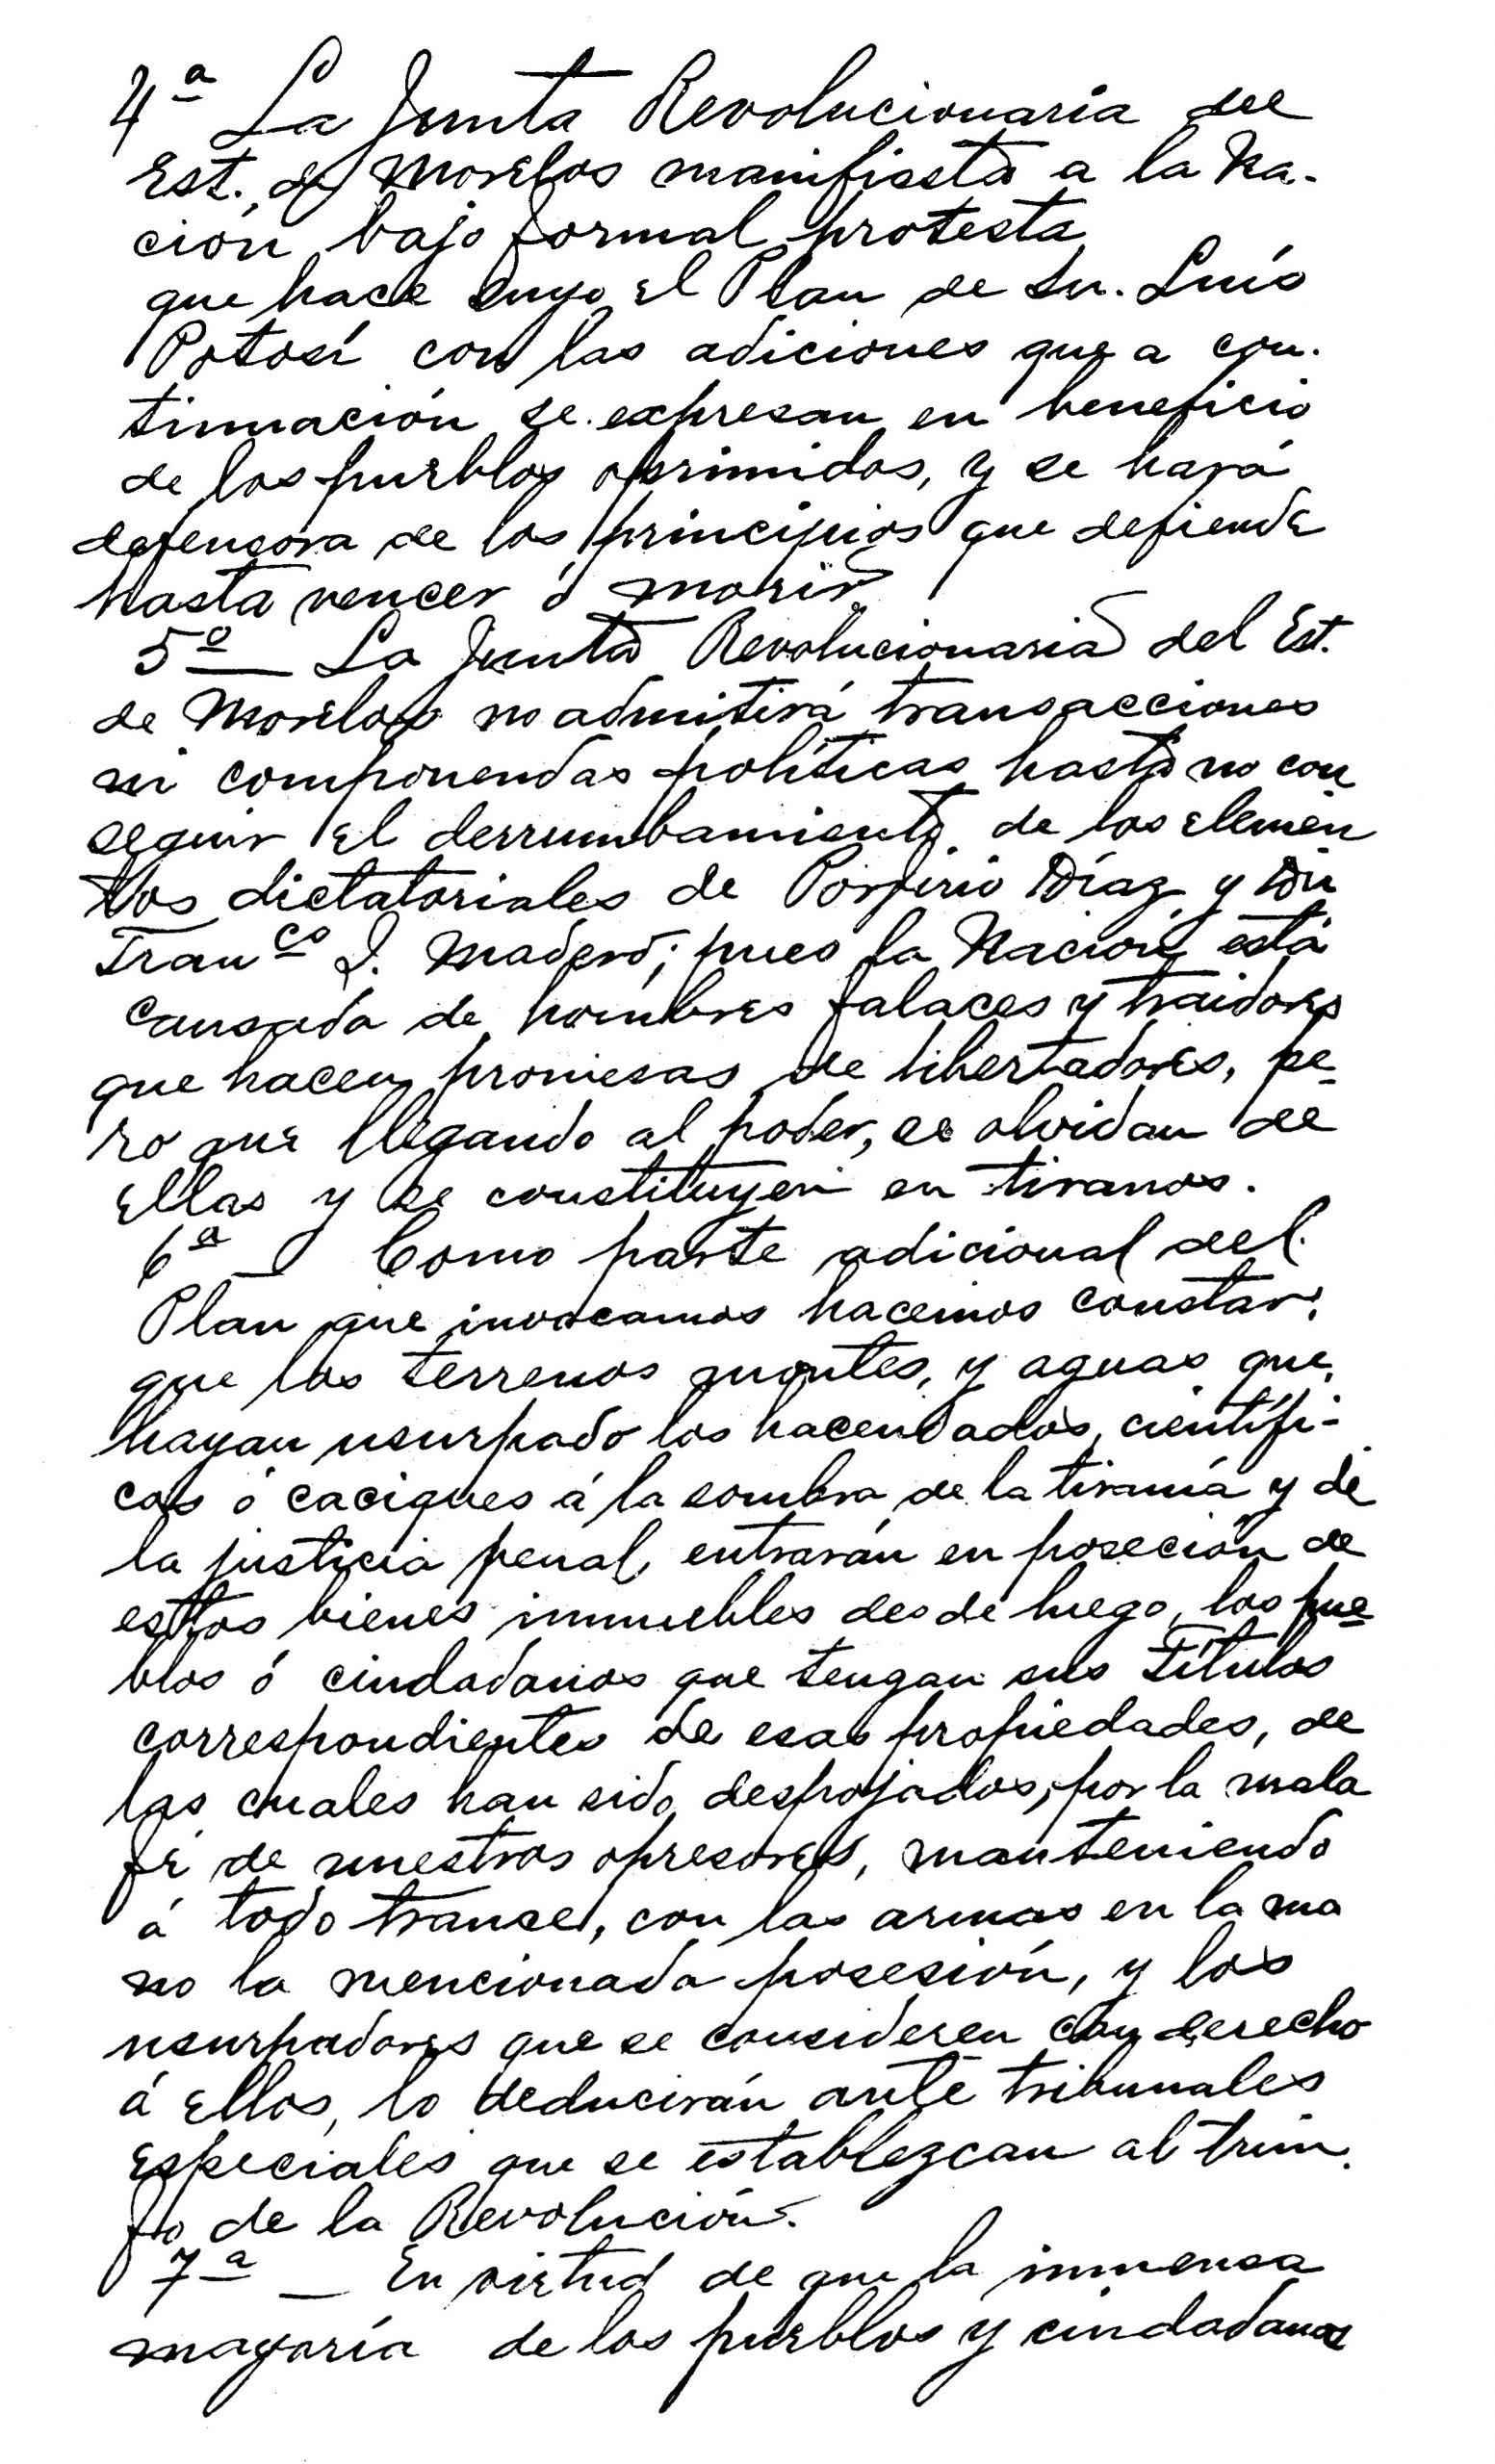 4ª La Junta Revolucionaria del
Est. de Morelos manifiesta a la Na-
ción bajo formal protesta
que hace suyo el Plan de Sn. Luís
Potosí con las adiciones que a con-
tinuación se expresan en beneficio
de los pueblos oprimidos, y se hará
defensora de los principios que defiende
hasta vencer ó morir
5º — La Junta Revolucionaria del Est.
de Morelos no admitirá transacciones
ni componendas políticas hasta no con
seguir el derrumbamiento de los elemen
tos dictatoriales de Porfirio Díaz y Dn
Franco I. Madero; pues la Nación está
cansada de hombres falaces y traidores
que hacen promesas de libertadores, pe-
ro que llegando al poder, se olvidan de
ellas y se constituyen en tiranos.
6ª — Como parte adicional del
Plan que invocamos hacemos constar:
que los terrenos montes, y aguas que
hayan usurpado los hacendados, científi-
cos ó caciques á la sombra de la tiranía y de
la justicia penal, entrarán en poseción de
estos bienes inmuebles desde luego, los pue
blos ó ciudadanos que tengan sus Títulos
correspondientes de esas propiedades, de
las cuales han sido despojados, por la mala
fé de nuestros opresores, manteniendo
á todo transe, con las armas en la ma
no la mencionada posesión, y los
usurpadores que se consideren con derecho
á ellos, lo deducirán ante tribunales
especiales que se establezcan al triun-
fo de la Revolución.
7ª — En virtud de que la inmensa
mayoría de los pueblos y ciudadanos